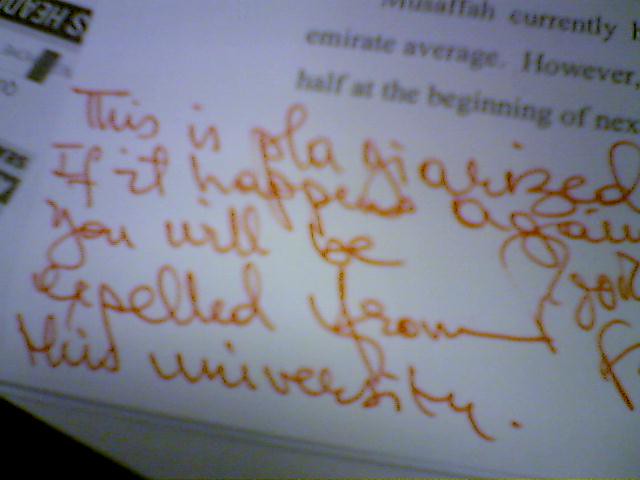 S HEAD
Musaffah currently
emirate average. However,
half at the beginning of nex
This is plagiarized
If it happens again
you will be
expelled from
this university.